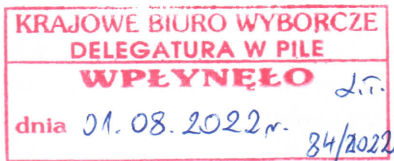 KRAJOWE BIURO WYBORCZE
DELEGATURA W PILE
WPŁYNĘŁO
dnia 01. 08. 2022 r.
84/2022